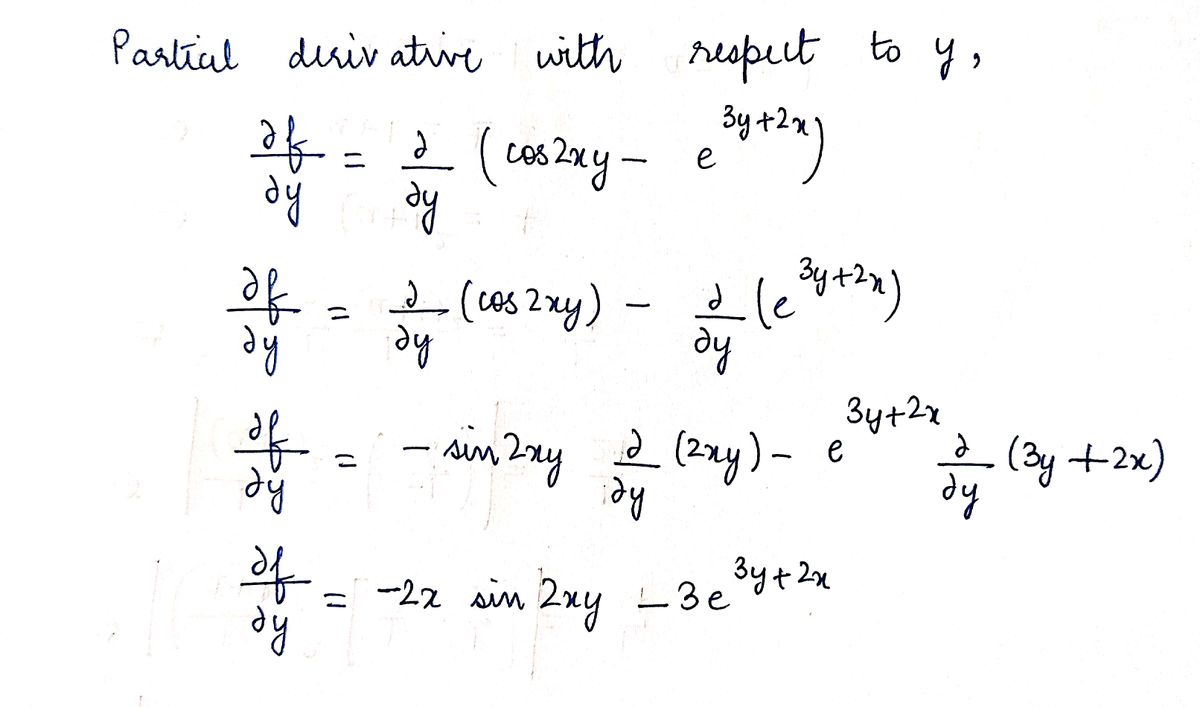 Partial derivative with respect to y,
∂f/∂y = ∂/∂y (cos2xy − e^{3y+2x})
∂f/∂y = ∂/∂y (cos 2xy) − ∂/∂y (e^{3y+2x})
∂f/∂y = − sin 2xy ∂/∂y (2xy) − e^{3y+2x} ∂/∂y (3y + 2x)
∂f/∂y = −2x sin 2xy − 3e^{3y+2x}